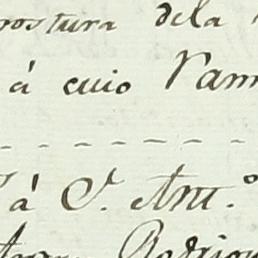 postura dela
á cuio Ram
á S. Ant.º
Rodrigu